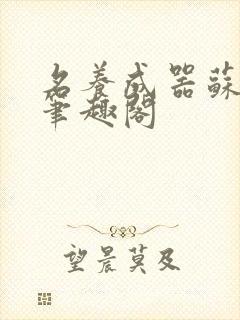 名養成器蘇
筆趣閣
望晨莫及